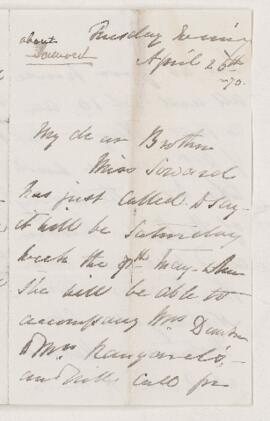 about
Soward
Tuesday Evening
April 26th
/70.
My dear Brother
Miss Soward
has just called & says
it will be Saturday
week the 7th May when
she will be able to
accompany Mrs
to Mrs
and will call for